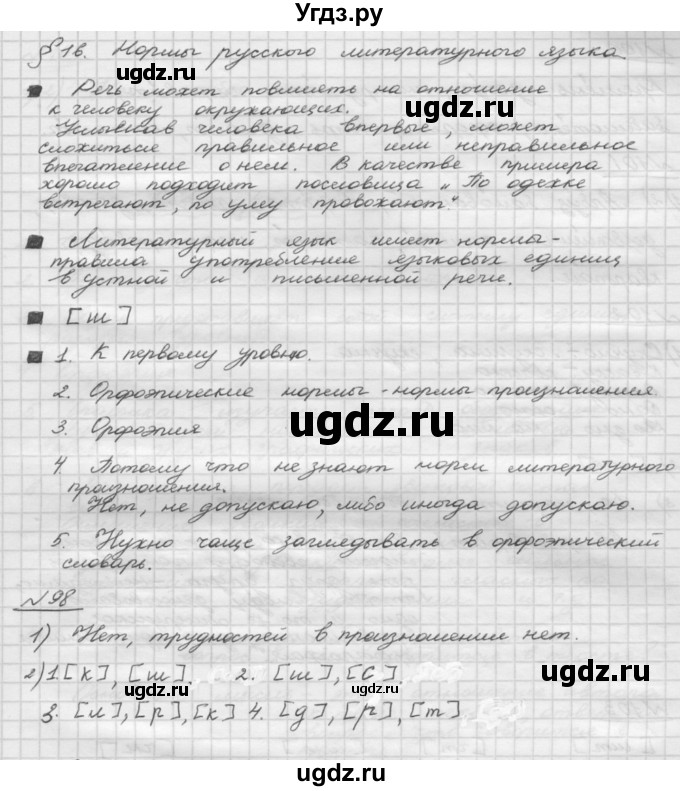 Угдз.ру
§ 16. Нормы русского литературного языка
Речь может повлиять на отношение
к человеку окружающих.
Услышав человека впервые, может
сложиться правильное или неправильное
впечатление о нем. В качестве примера
хорошо подходит пословица „По одежке
встречают, по уму провожают."
Литературный язык имеет норма-
правила употребление языковых единиц
в устной и письменной речи.
[ш]
1. К первому уровню.
2. Орфоэпические нормы - нормы произношения
3. Орфоэпия
4. Потому что не знают норм литературного
произношения.
Нет, не допускаю, либо иногда допускаю.
5. Нужно чаще заглядывать в орфоэпический
словарь.
№98
1) Нет, трудностей в произношении нет.
2) 1. [к], [ш]. 2. [ш], [с].
3. [л], [р], [к] 4. [д], [р], [т]
ugdz.ru
ugdz.ru
ugdz.ru
ugdz.ru
ugdz.ru
ugdz.ru
ugdz.ru
ugdz.ru
ugdz.ru